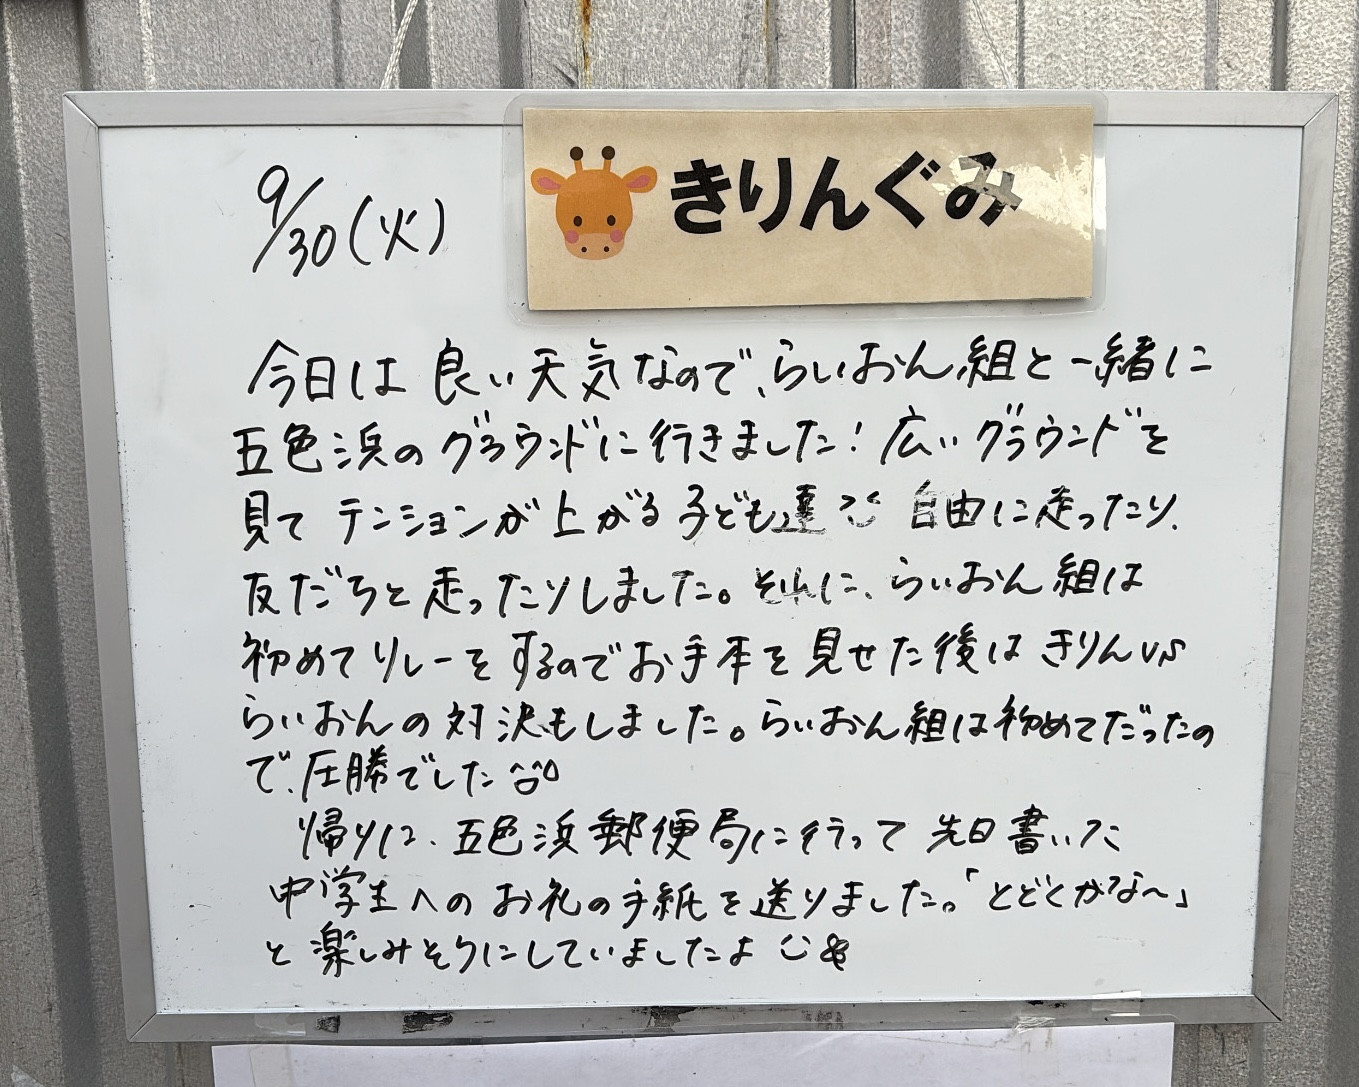 きりんぐみ
9/30(火)
今日は良い天気なので、らいおん組と一緒に
五色浜のグラウンドに行きました!広いグラウンドを
見てテンションが上がる子ども達 自由に走ったり、
友だちと走ったりしました。それに、らいおん組は
初めてリレーをするのでお手本を見せた後はきりんVS
らいおんの対決もしました。らいおん組は初めてだったの
で、圧勝でした^^
帰りに、五色浜郵便局に行って先日書いた
中学生へのお礼の手紙を送りました。「とどくかな〜」
と楽しみそうにしていましたよ